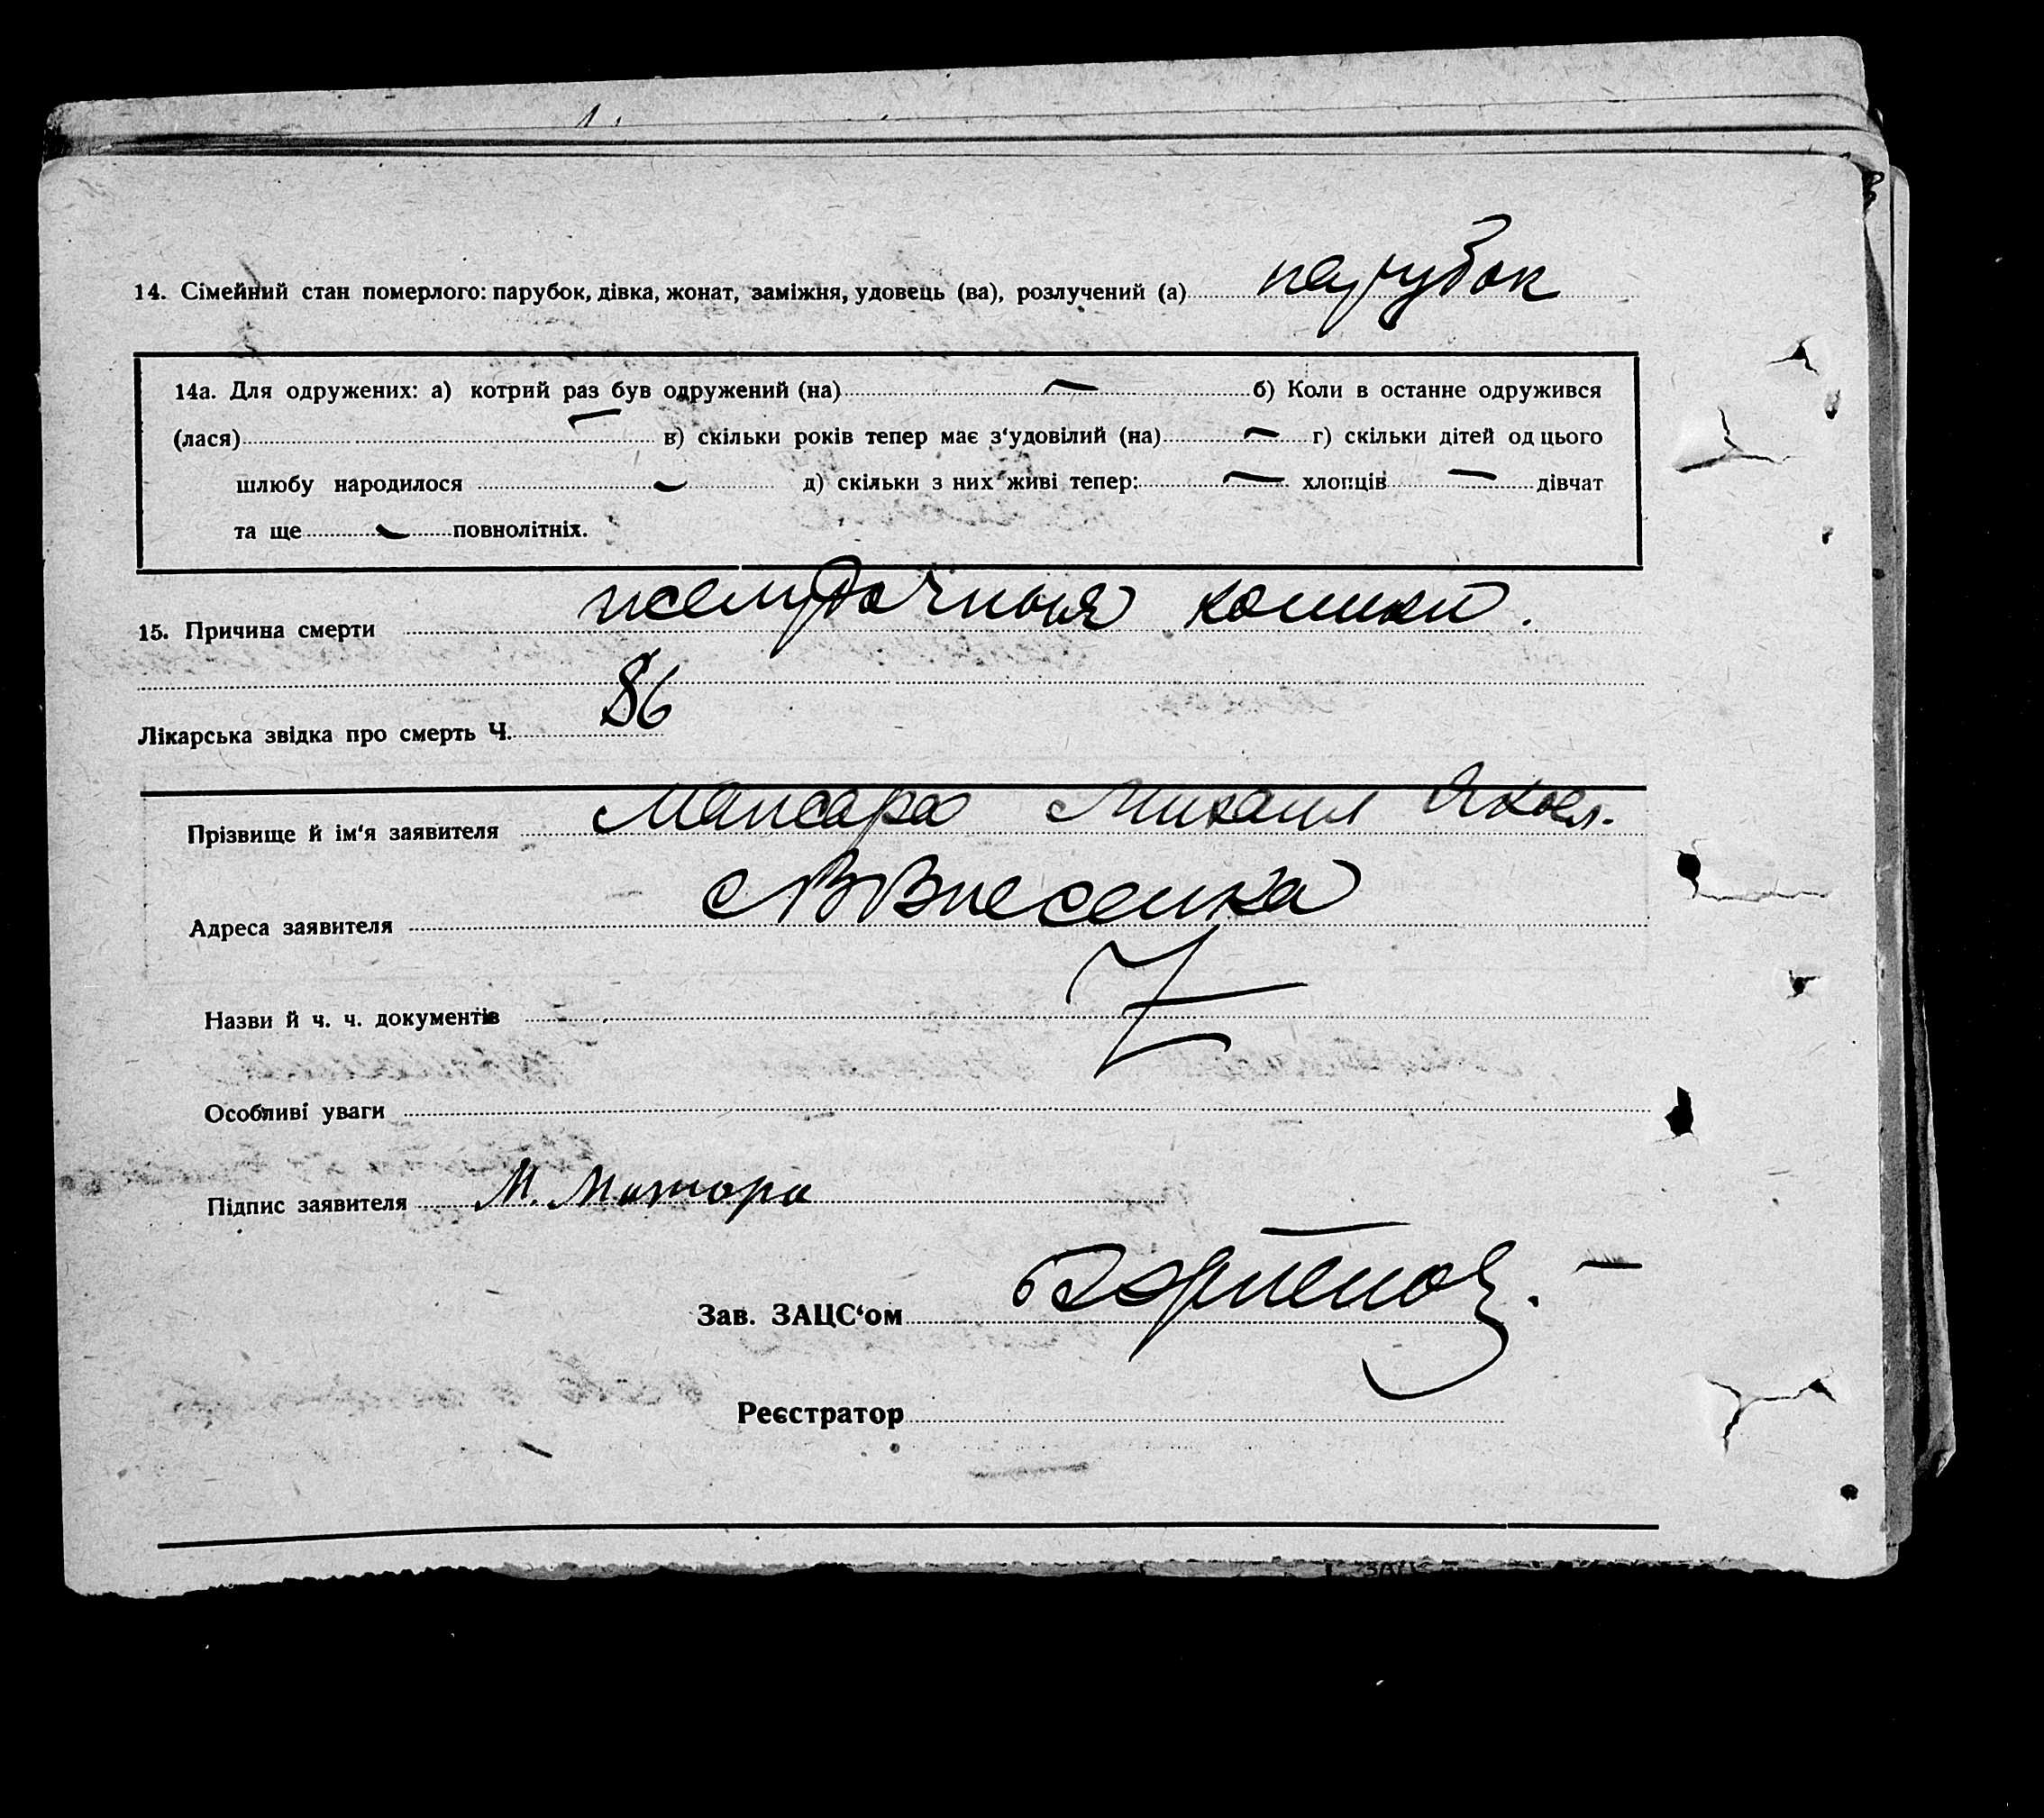 14. Сімейний стан померлого: парубок, дівка, жонат, заміжня, удовець (ва), розлучений (а) парубок
14а. Для одружених: а) котрий раз був одружений (на) — б) Коли в останнє одружився
(лася) — в) скільки років тепер має з‘удовілий (на) — г) скільки дітей од цього
шлюбу народилося — д) скільки з них живі тепер: — хлопців — дівчат
та ще — повнолітніх.
15. Причина смерти желудочныя колики.
Лікарська звідка про смерть Ч. 86
Прізвище й ім‘я заявителя Михаил Яковл.
Адреса заявителя
Назви й ч. ч. документів
Особливі уваги
Підпис заявителя М.
Зав. ЗАЦС‘ом
Реєстратор